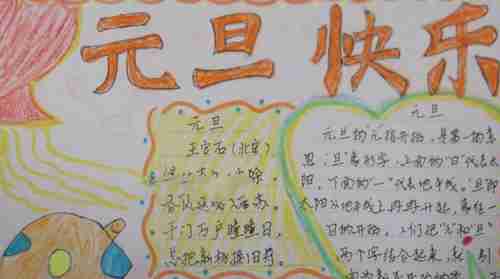 元旦快乐
元旦
王安石(北宋)
除,
春风送暖入屠苏。
千门万户瞳瞳日,
总把新桃换旧符。
元旦
元旦的"元"指开始,是第一的意
思;"旦"象形字,上面的"日"代表太
阳,下面的"一"代表地平线。"旦"即
太阳从地平线上冉冉升起,象征一
日的开始。人们把"元"和"旦"
两个字结合起来,就引